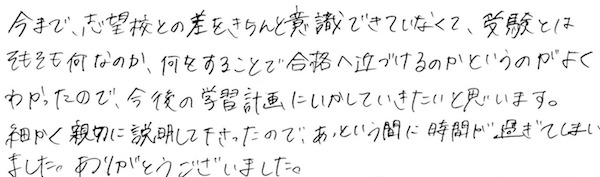 今まで、志望校との差をきちんと意識できていなくて、受験とは
そもそも何なのか、何をすることで合格へ近づけるのかというのがよく
わかったので、今後の学習計画にいかしていきたいと思います。
細かく親切に説明して下さったので、あっという間に時間が過ぎてしまい
ました。ありがとうございました。